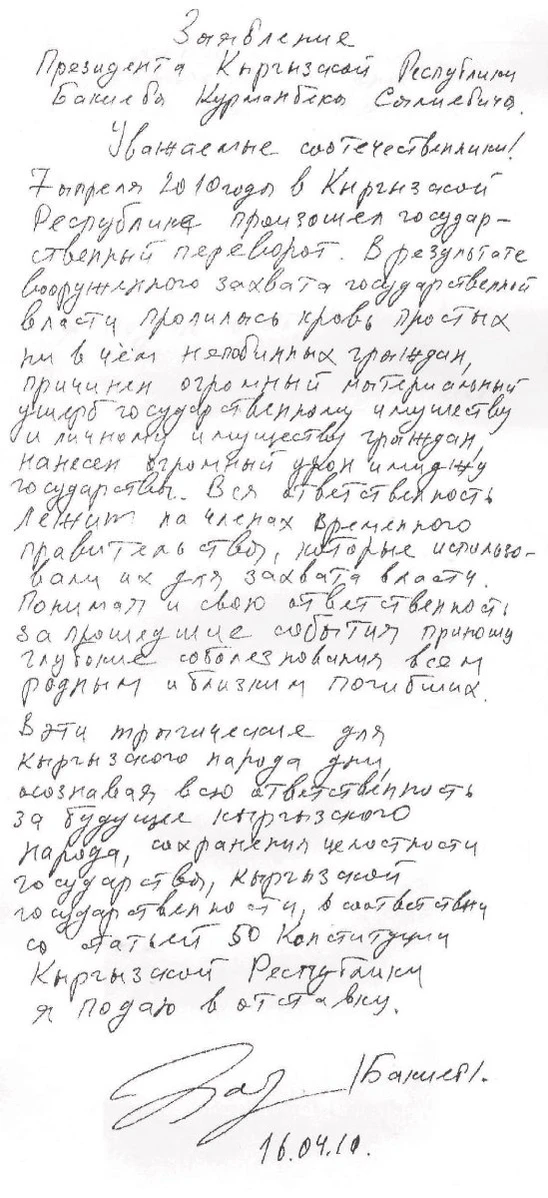 Заявление
Президента Кыргызской Республики
Бакиева Курманбека Салиевича.
Уважаемые соотечественники!
7 апреля 2010 года в Кыргызской
Республике произошел государ-
ственный переворот. В результате
вооруженного захвата государственной
власти пролилась кровь простых
ни в чём неповинных граждан,
причинен огромный материальный
ущерб государственному имуществу
и личному имуществу граждан,
нанесен огромный урон имиджу
государства. Вся ответственность
лежит на членах временного
правительства, которые использо-
вали их для захвата власти.
Понимая и свою ответственность
за прошедшие события приношу
глубокие соболезнования всем
родным и близким погибших.
В эти трагические для
кыргызского народа дни,
осознавая всю ответственность
за будущее кыргызского
народа, сохранения целостности
государства, кыргызской
государственности, в соответствии
со статьей 50 Конституции
Кыргызской Республики
я подаю в отставку.
/Бакиев/.
16.04.10.